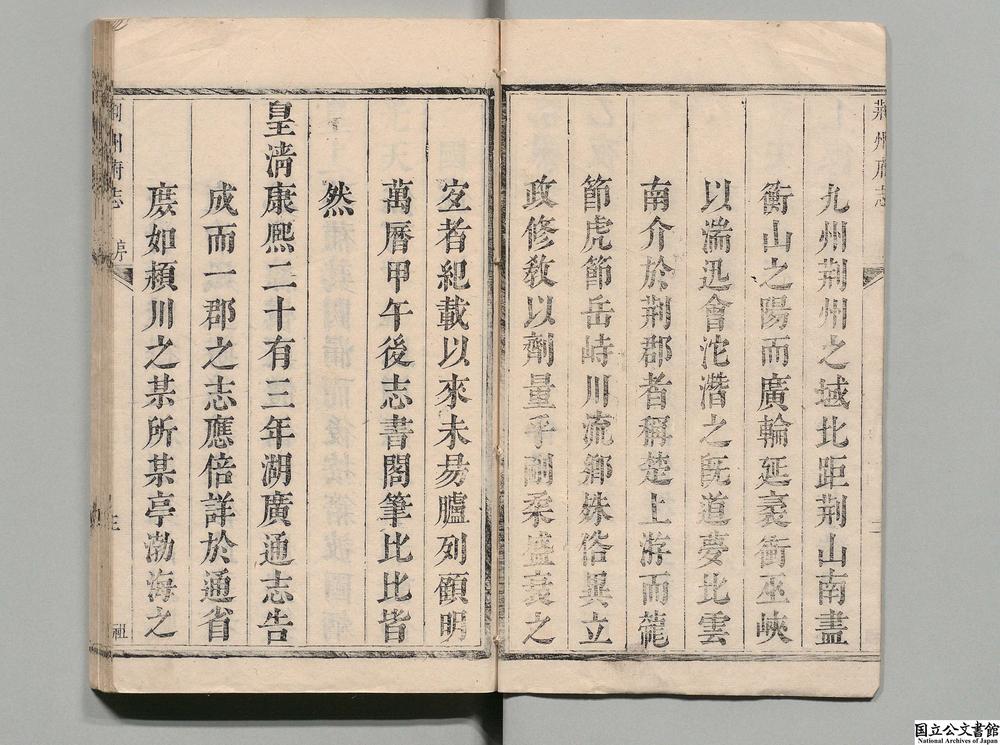 荆州府志
九州荆州之域北距荆山南盡
衡山之陽而廣輪延袤衝巫峽
以湍迅會沱潛之既道夢比雲
南介於荆郡者稱楚上游而龍
節虎節岳峙川流鄉殊俗異立
政修敎以劑量乎剛柔盛衰之
㝎者紀載以來未昜臚列顧明
萬曆甲午後志書閣筆比比皆
然
皇淸康熙二十有三年湖廣通志告
成而一郡之志應倍詳於通省
庻如潁川之某所某亭渤海之
荆州府志
序
國立公文書館
National Archives of Japan